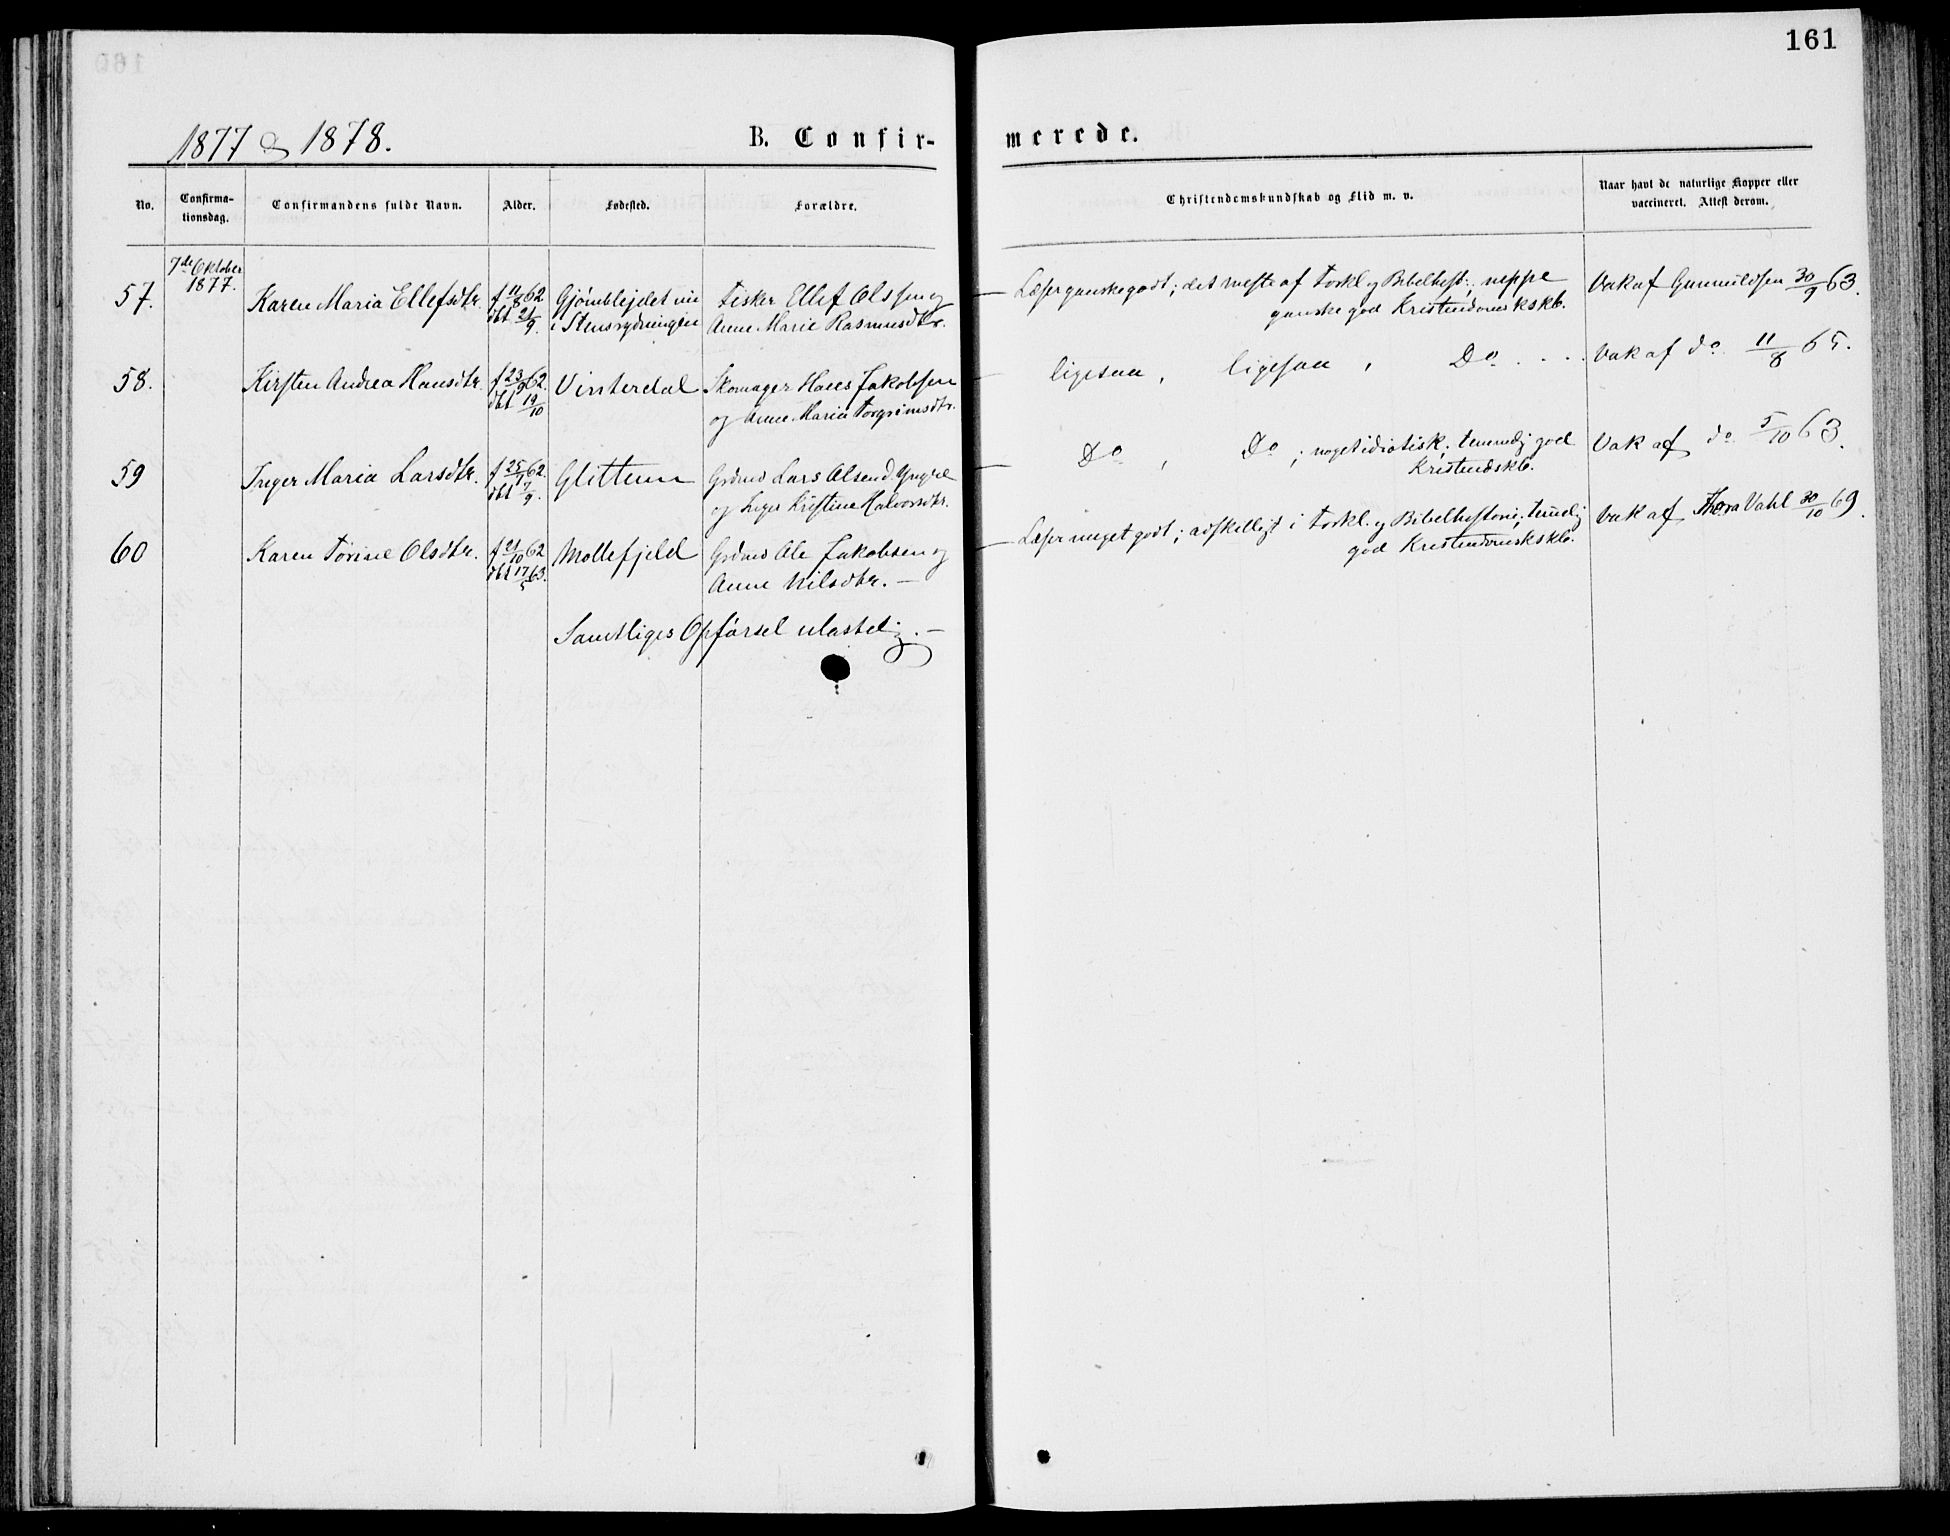 161
1877 & 1878.
B. Confir-
merede.
No.
Confirma-
tionsdag.
Confirmandens fulde Navn.
Alder.
Fødested.
Forældre.
Christendomskundskab og Flid m. v.
Naar havt de naturlige Kopper eller
vaccineret. Attest derom.
7de Oktober
1877.
57.
Karen Maria Ellefsdtr.
f 11/8 62
dbt 21/9.
i Stensrydningen
Fisker Ellef Olssen og
Anne Marie Rasmusdtr.
Læser ganske godt; det meste af Forkl. og Bibelhist.; neppe
ganske god Kristendomskskb.
Vak af Gunnuldsen 30/9 63.
58.
Kirsten Andrea Hansdtr.
f 23/9 62
dbt 19/10
Vinterdal
Skomager Hans Jakobsen
og Anne Maria Torgrimsdtr.
ligesaa, ligesaa, Do . . .
Vak af do 11/8 65.
59
Inger Maria Larsdtr.
f 25/7 62
dbt 7/9.
Glittum
Grdmd Lars Olsen d. Yngre
og Inger Kristine Halvorsdtr.
Do, Do; noget idiotisk; temmelig god
Kristendskb.
Vak af do 5/10 63.
60
Karen Torine Olsdtr.
f 21/10 62
dbt 17/5 63.
Mollefjeld
Grdmd Ole Jakobsen og
Anne Nilsdtr. —
Læser meget godt; adskilligt i Forkl. og Bibelhistorie; temlig
god Kristendomskskb.
Vak af Thora Vahl 30/10 69.
Samtliges Opførsel ulastelig. —